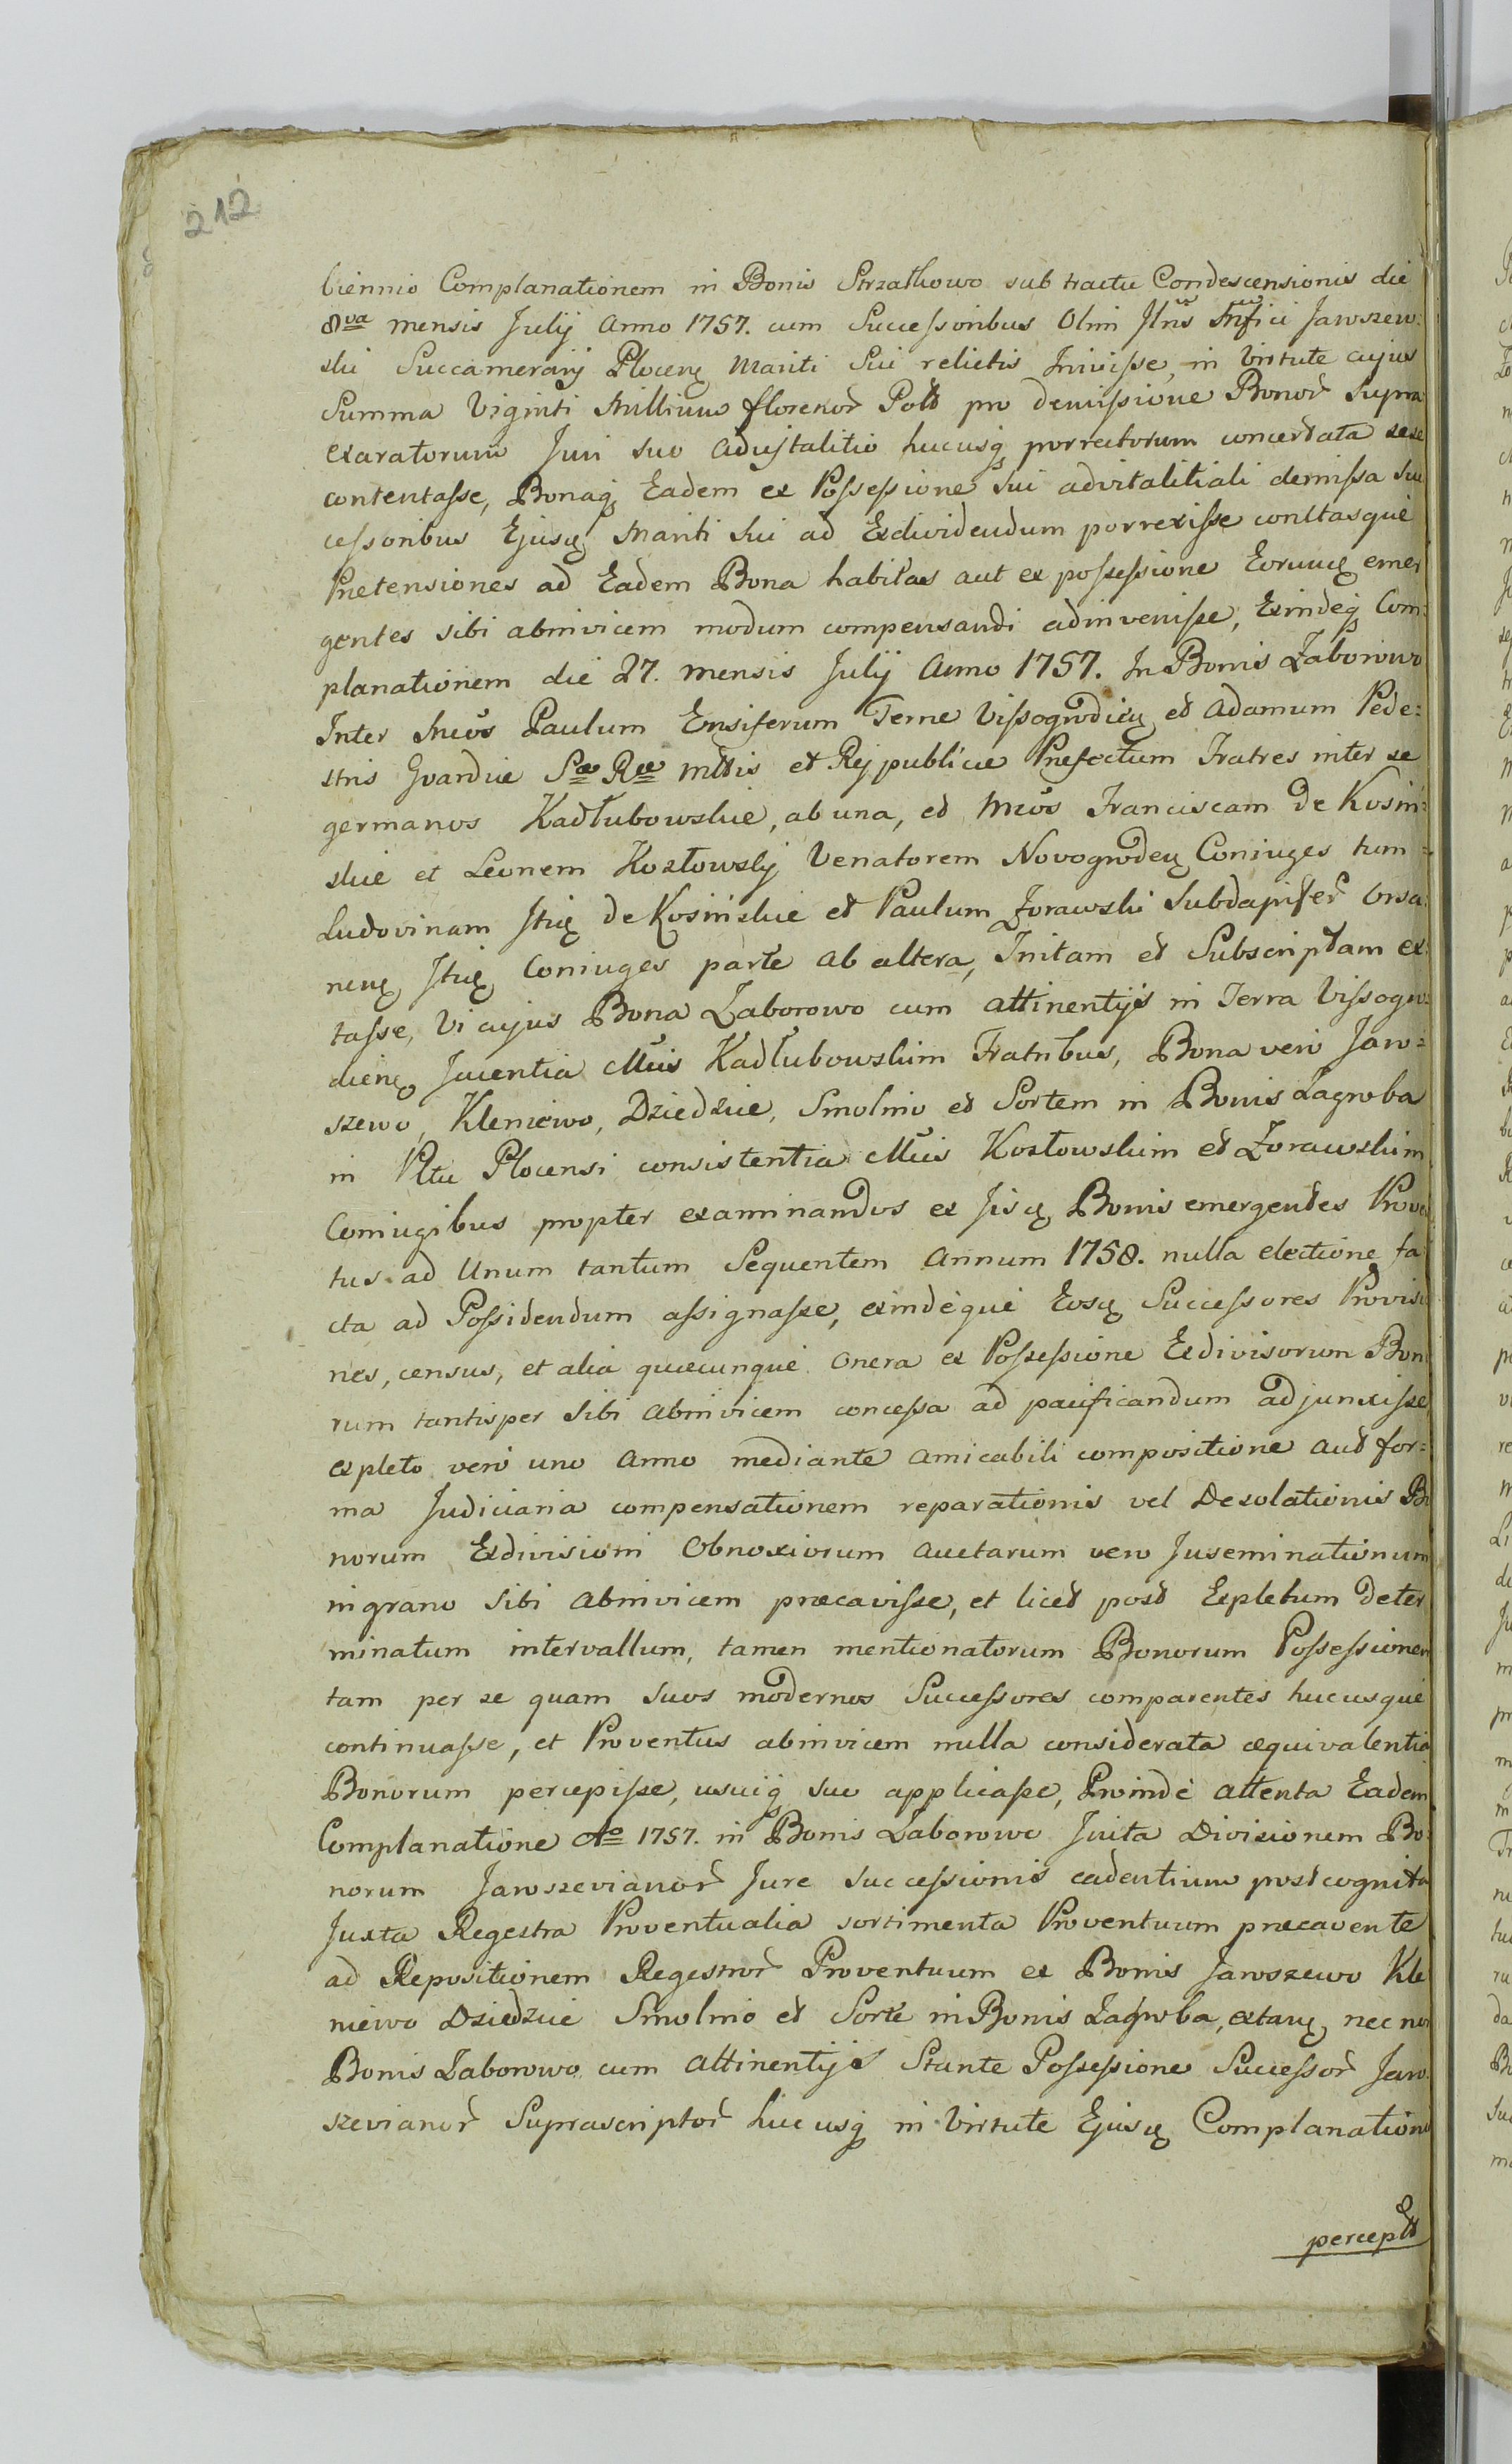 212
biennio Complanationem in Bonis Strzałkowo sub tractu Condescensionis die
8va mensis Julij Anno 1757. cum Successoribus Olim Jaroszew:
ski Succamerarij Plocens Mariti Sui relictis Inivisse, in Virtute cujus
Summa Viginti Millium florenor Pold pro demissione Bonor Supra
exaratorum Juri suo advitalitio hucusq porrectorum concertata sese
contentasse, Bonaq Eadem ex Possessione Sui advitalitiali demissa Suc
cessoribus Ejusd Mariti Sui ad Exdividendum porrexisse
Pretensiones ad Eadem Bona habitas aut ex possessione Eorund emer
gentes sibi abinvicem modum compensandi adinvenisse, Exindeq Com:
planationem die 27. mensis Julij Anno 1757. In Bonis Zaborowo
Inter Mcos Paulum Ensiferum Terræ Vissogrodien et Adamum Pede:
stris Gvardiæ Sæ Ræ Mttis et Reipublicæ Præfectum Fratres inter se
germanos Kadłubowskie, ab una, et Mcos Franciscam de Kosin:
skie et Leonem Kozłowski Venatorem Novogroden Coniuges tum
Ludovinam Itid de Kosińskie et Paulum Zorawski Subdapifer Orsa:
Itid Coniuges parte ab altera, Initam et Subscriptam ex:
tasse, Vi cujus Bona Zaborowo cum attinentijs in Terra Vissogro:
dien Jacentia Mcis Kadłubowskim Fratribus, Bona vero Jaro:
szewo, Kleniewo, Dziedzice, Smolino et Sortem in Bonis Zagroba
in Pltu Plocensi consistentia Mcis Kozłowskim et Zorawskim
Coniugibus propter examinandos ex Iisd Bonis emergentes Proven
tus ad Unum tantum Sequentem Annum 1758. nulla electione fa
cta ad Possidendum assignasse, exindeque Eosd Successores Proviso
nes, census, et alia quæcunque onera ex Possessione Exdivisorum Bono
rum tantisper Sibi abinvicem concessa ad pacificandum adjunxisse
expleto vero uno Anno mediante amicabili compositione aut for=
ma Judiciaria compensationem reparationis vel Desolationis Bo
norum Exdivisioni Obnoxiorum auctarum vero Inseminationum
in grano Sibi abinvicem præcavisse, et licet post Expletum Deter
minatum intervallum, tamen mentionatorum Bonorum Possessionem
tam per se quam Suos modernos Successores comparentes hucusque
continuasse, et Proventus abinvicem nulla considerata æquivalentia
Bonorum percepisse, usuiq suo applicasse, Proinde attenta Eadem
Complanatione Ao 1757. in Bonis Zaborowo Juxta Divisionem Bo:
norum Jaroszevianor Jure Successionis cadentium post cognita
Juxta Regestra Proventualia sortimenta Proventuum præcavente
ad Repositionem Regestror Proventuum ex Bonis Jaroszewo Kle
niewo Dziedzice Smolino et Sorte in Bonis Zagroba, extan, nec non
Bonis Zaborowo cum attinentijs Stante Possessione Successor Jaro:
szevianor Suprascriptor hucusq in Virtute Ejusd Complanationis
percept